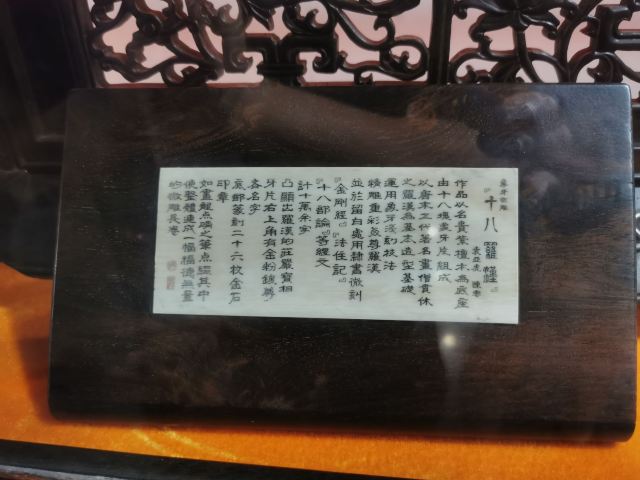 象牙微雕
十八羅漢
作品以名貴紫檀木為底座
由十八塊象牙片組成
以唐末五代著名畫僧貫休
之羅漢為基本造型基礎
運用象牙淺刻技法
精雕重彩各尊羅漢
並於留白處用隸書微刻
《金剛經》《法住記》
《十八部論》等經文
計十萬余字
凸顯出羅漢的莊嚴寶相
牙片右上角有金粉鎸尊
者名字
底部篆刻二十六枚金石
印章
如畫龍点睛之筆点綴其中
使整體連成一幅福德無量
的微雕長卷